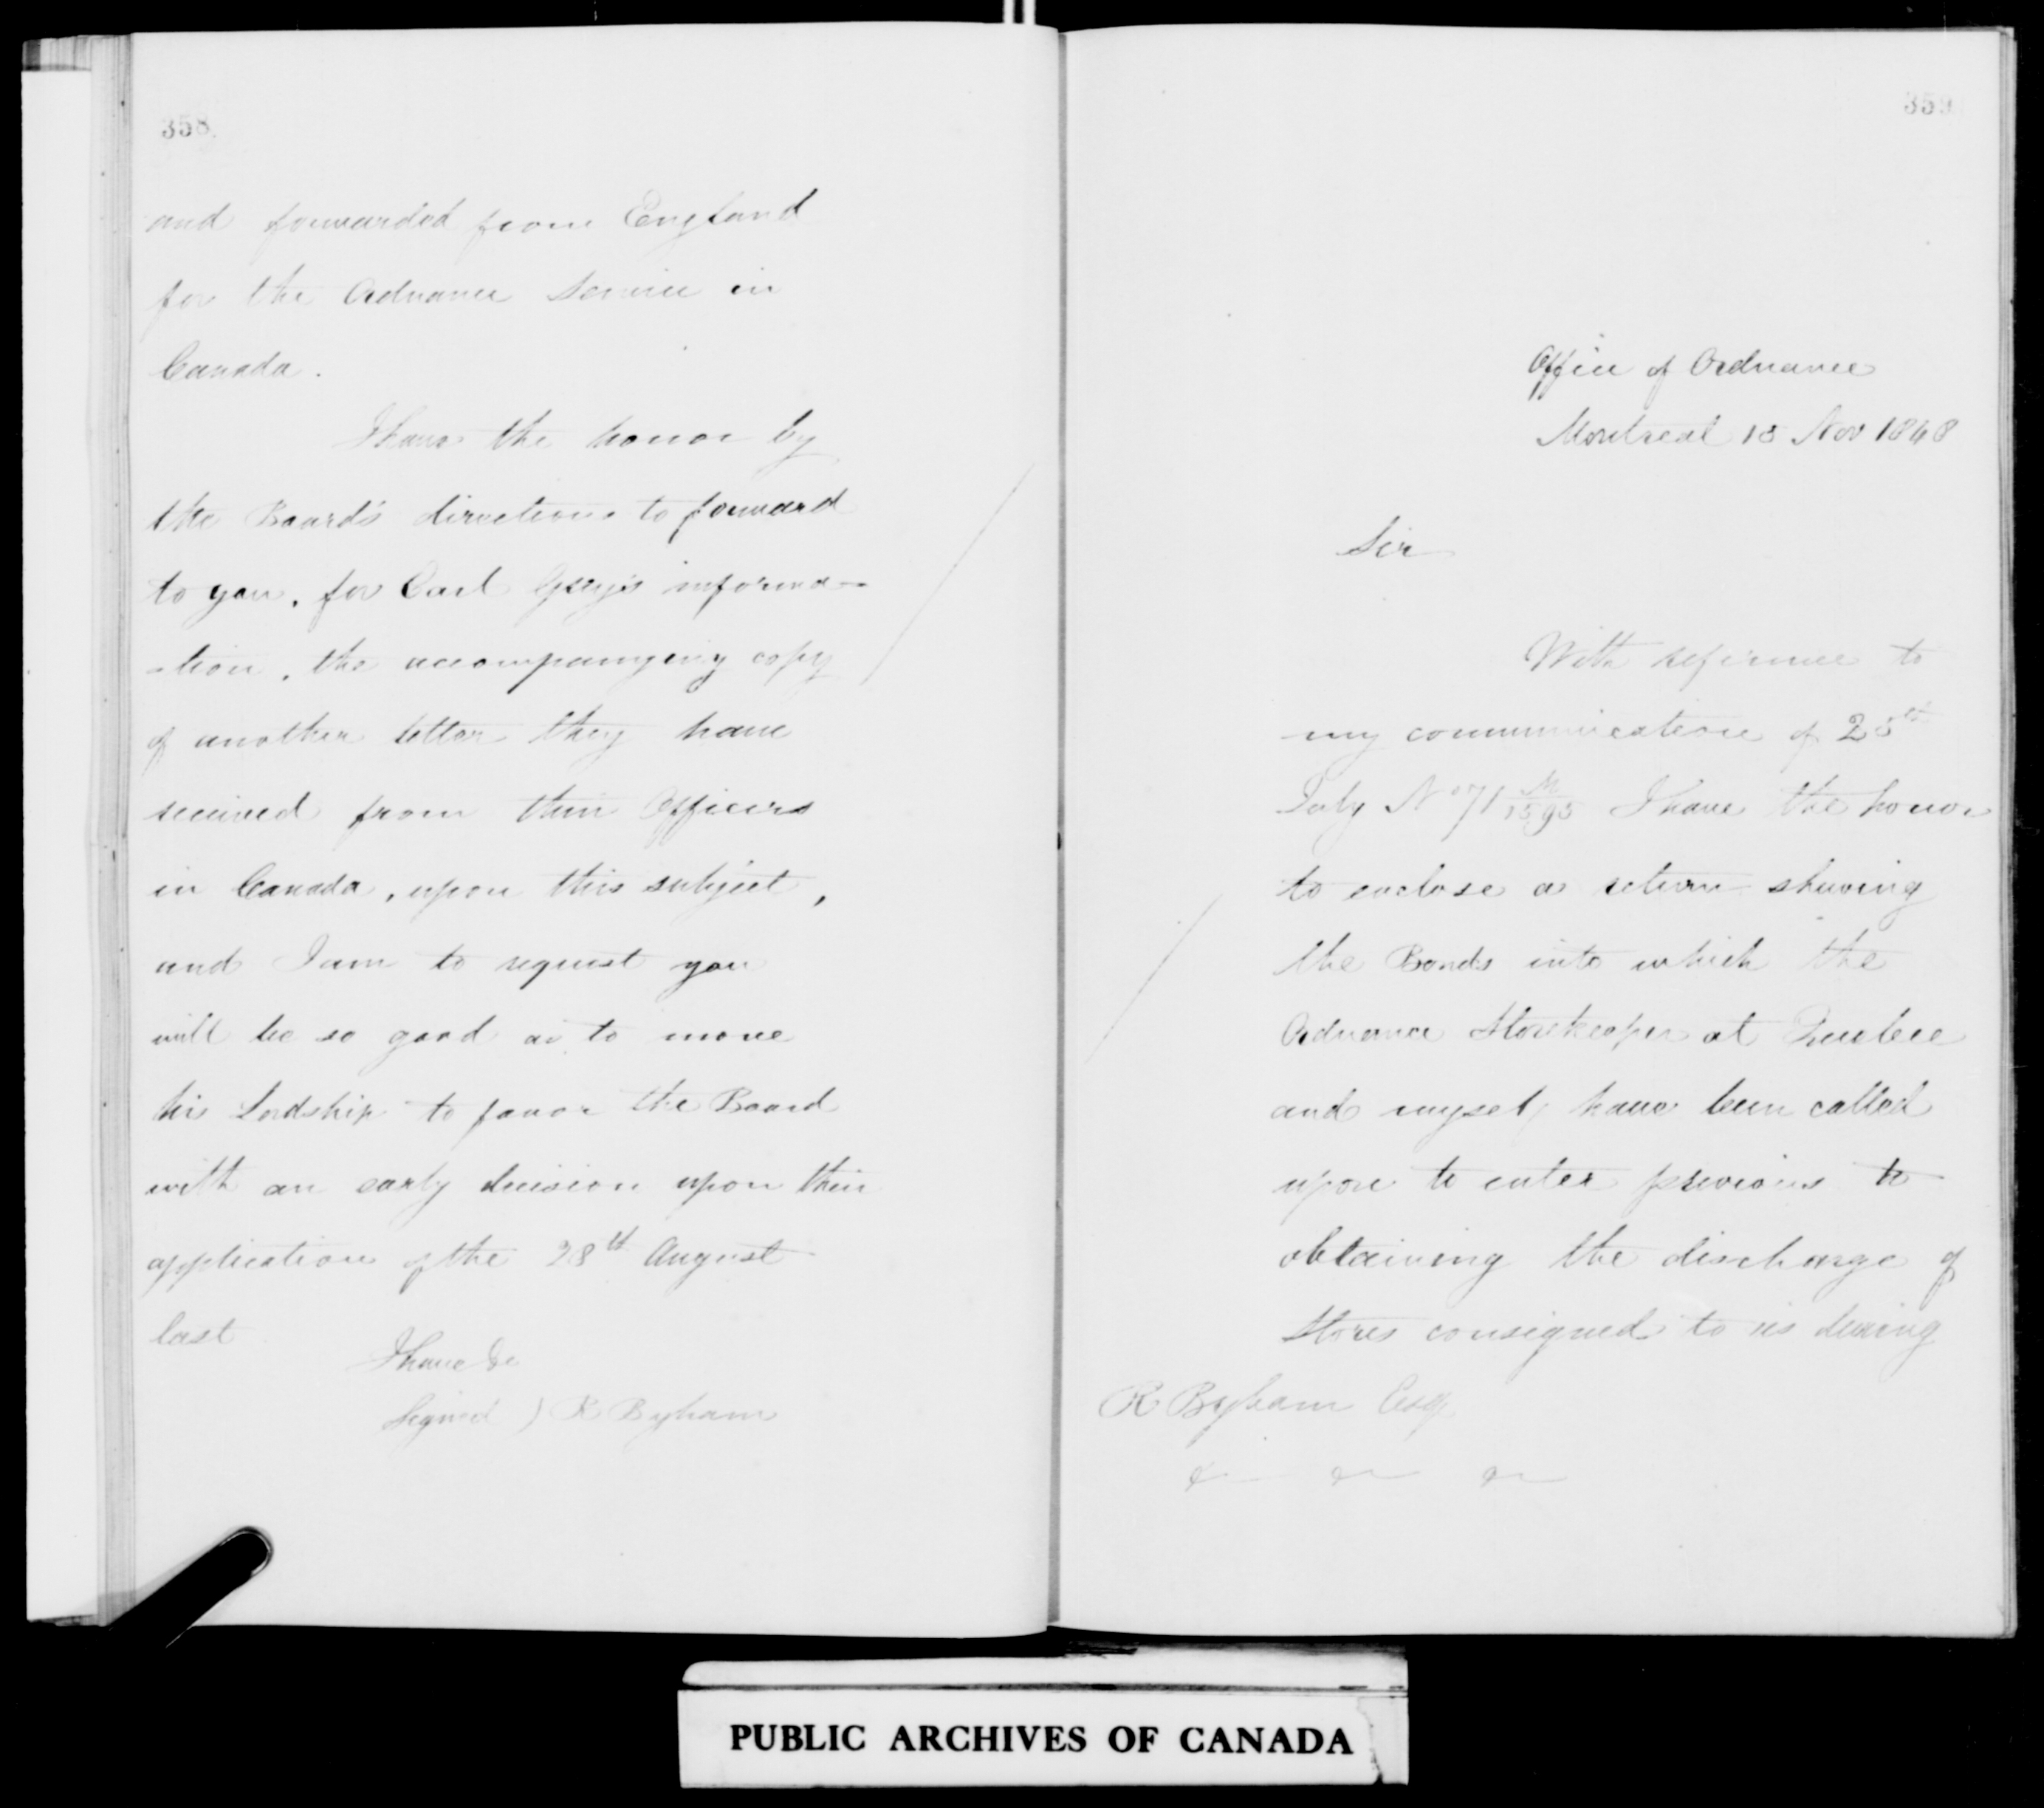 358.
and forwarded from England
for the Ordnance Service in
Canada.
I have the honor by
the Board's directions to forward
to you, for Earl Grey's informa-
-tion, the accompanying copy
of another letter they have
received from their Officers
in Canada, upon this subject,
and I am to request you
will be so good as to move
his Lordship to favor the Board
with an early decision upon their
application of the 28th August
last
I have &c
Signed) R Byham
359.
Office of Ordnance
Montreal 13 Nov 1848
Sir
With reference to
my communication of 25th
July No 71 M/1595 I have the honor
to enclose a return shewing
the Bonds into which the
Ordnance Storekeeper at Quebec
and myself have been called
upon to enter previous to
obtaining the discharge of
Stores consigned to us during
R Byham Esq
PUBLIC ARCHIVES OF CANADA